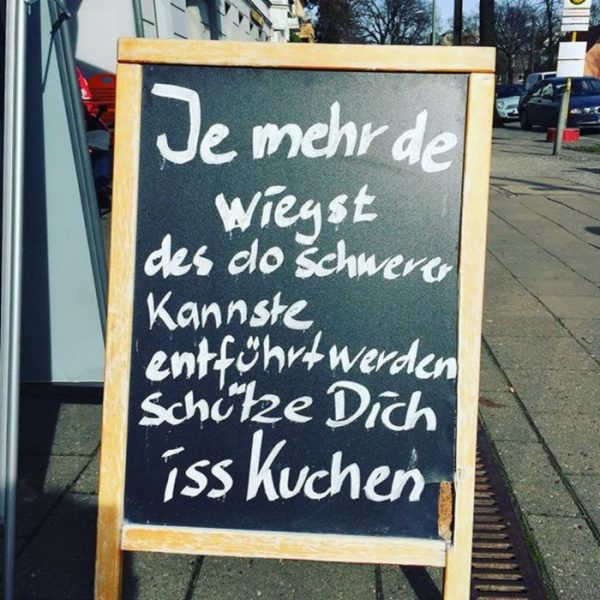 Je mehr de
wiegst
des do schwerer
Kannste
entführt werden
Schütze Dich
iss Kuchen